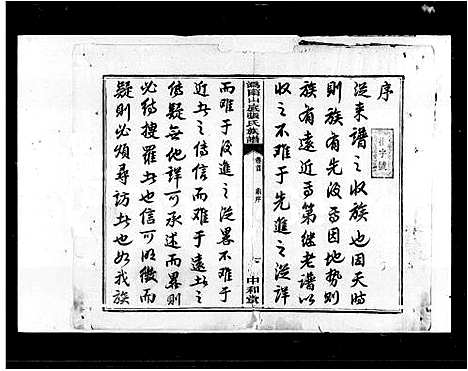 序
從來譜之收族也因天時
則族有先後焉因地勢則
族有遠近焉第継老譜以
收之不难于先進之從詳
山 張氏族譜
卷首
序
中和堂
而难于後進之從畧不难于
近者之傳信而难于遠者之
傳疑無他詳可承述而畧則
必待搜羅者也信可明徵而
疑則必須尋訪者也如我族